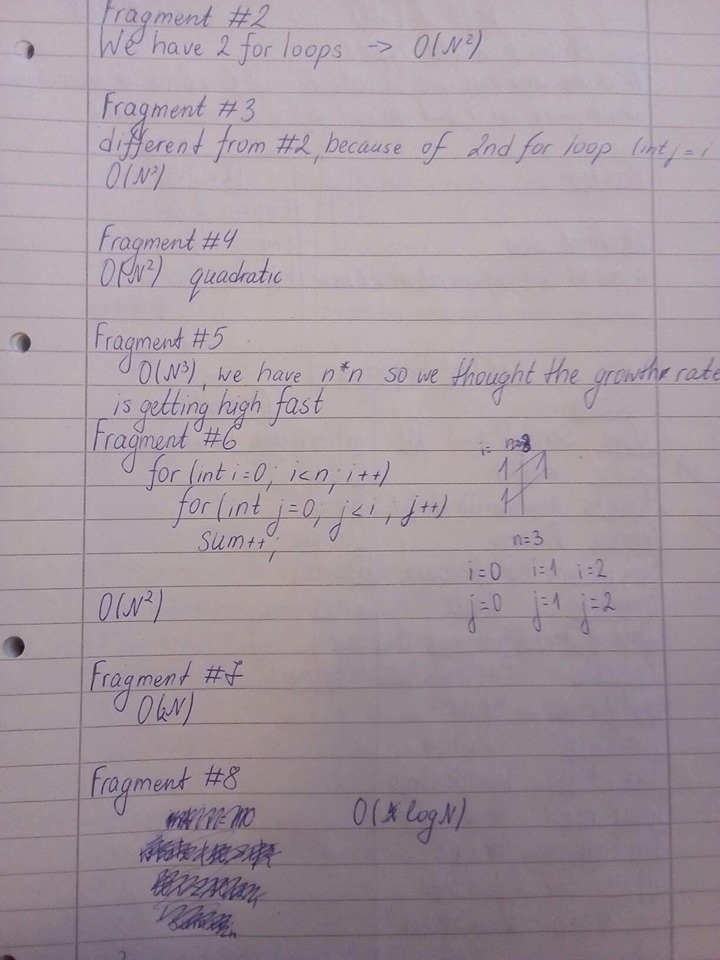 Fragment #2
We have 2 for loops -> O(N²)
Fragment #3
different from #2, because of 2nd for loop (int j = i
O(N²)
Fragment #4
O(N²) quadratic
Fragment #5
O(N³), we have n*n so we thought the growth rate
is getting high fast
Fragment #6
for (int i=0; i<n; i++)
for (int j=0; j<i, j++)
sum++;
i=
n=3
i=0 i=1 i=2
j=0 j=1 j=2
O(N²)
Fragment #7
Fragment #8
O( log N)